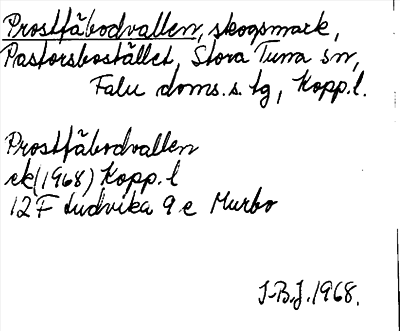 Prostfäbodvallen, skogsmark,
Pastorsbostället, Stora Tuna sn,
Falu doms.s. tg, Kopp.l.
Prostfäbodvallen
ek(1968) Kopp.l
12F Ludvika 9e Murbo
J-B.J. 1968.